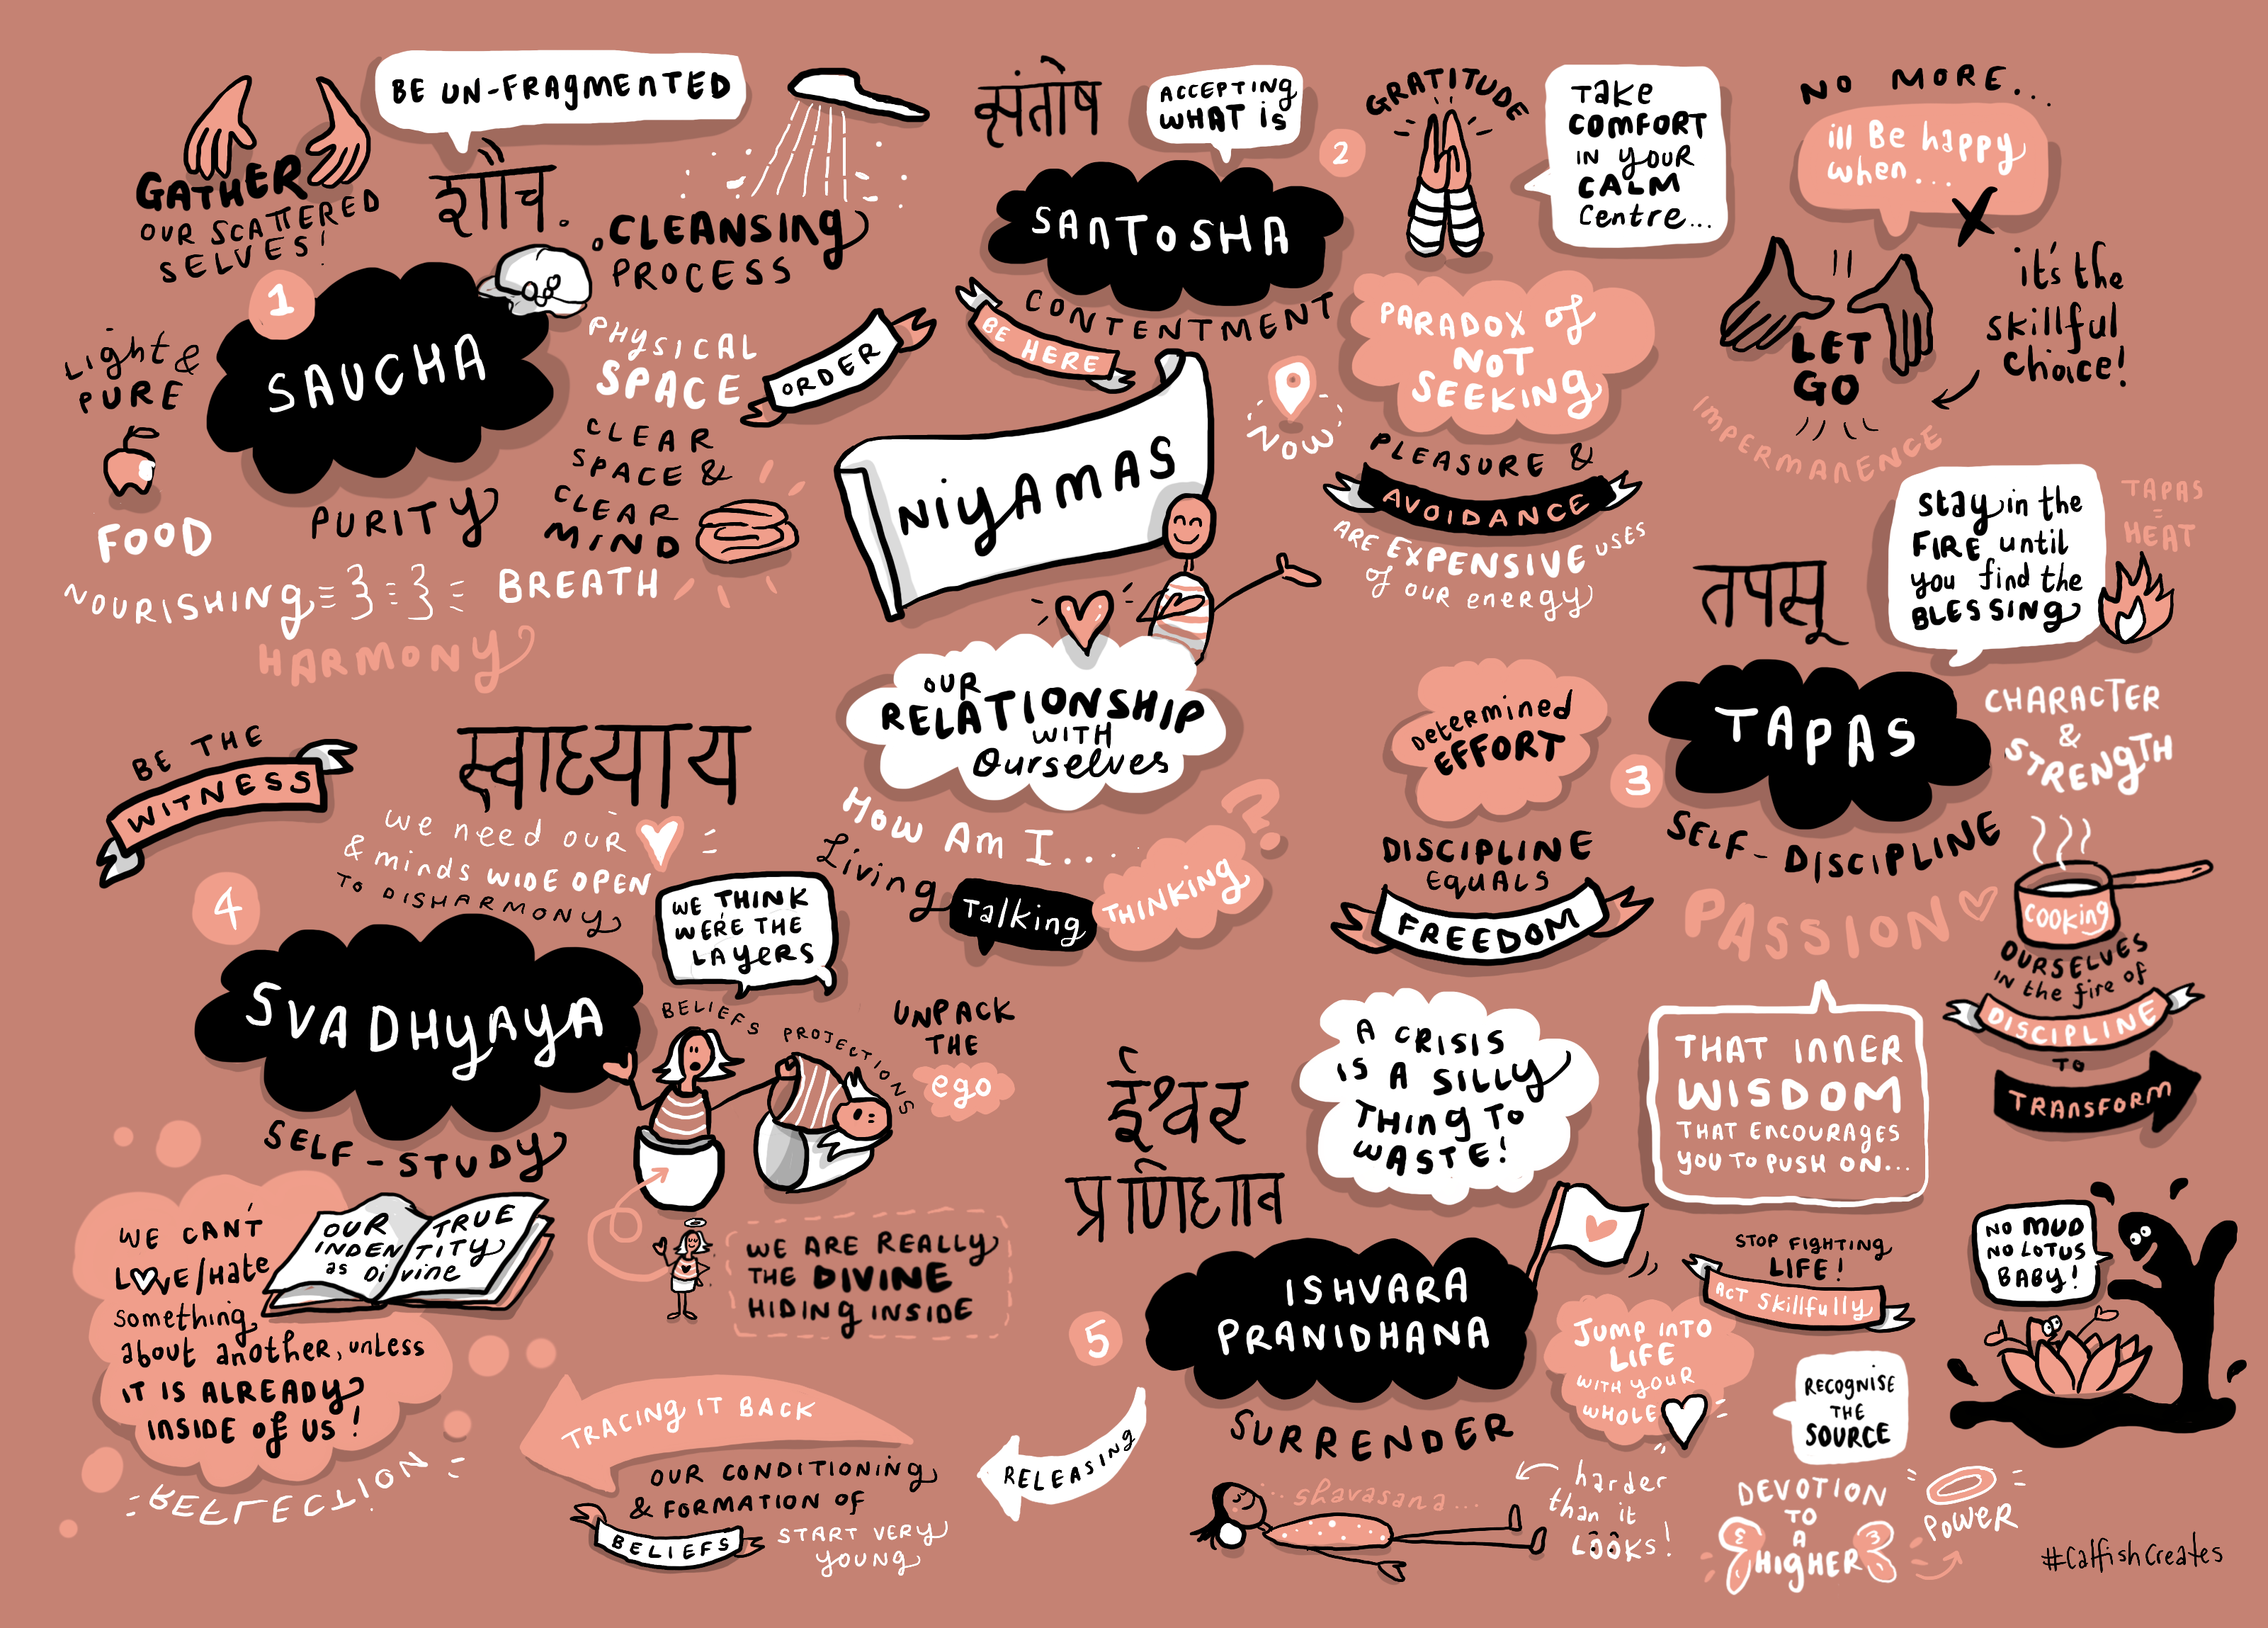 GATHER
OUR SCATTERED
SELVES!
BE UN-FRAGMENTED
शौच.
CLEANSING
PROCESS
1
SAUCHA
PURITY
Light &
PURE
FOOD
NOURISHING
BREATH
HARMONY
PHYSICAL
SPACE
ORDER
CLEAR
SPACE &
CLEAR
MIND
संतोष
ACCEPTING
WHAT is
2
SANTOSHA
CONTENTMENT
BE HERE
NOW
GRATITUDE
Take
COMFORT
IN YOUR
CALM
Centre...
NO MORE...
ill Be happy
when...
LET
GO
it's the
skillful
choice!
IMPERMANENCE
PARADOX of
NOT
SEEKING
PLEASURE &
AVOIDANCE
ARE EXPENSIVE USES
of our energy
NiyAMAS
OUR
RELATIONSHIP
WITH
Ourselves
How Am I...
Living
Talking
THINKING
??
तपसू
Stay in the
FIRE until
you find the
BLESSING
TAPAS
=
HEAT
3
TAPAS
SELF-DISCIPLINE
CHARACTER
&
STRENGTH
Determined
EFFORT
DISCIPLINE
EQUALS
FREEDOM
PASSION
COOKING
OURSELVES
IN the fire of
DISCIPLINE
TO
TRANSFORM
A CRISIS
IS A SILLY
THING TO
WASTE!
THAT INNER
WISDOM
THAT ENCOURAGES
YOU TO PUSH ON...
BE THE
WITNESS
स्वाध्याय
we need our
& minds WIDE OPEN
TO DISHARMONY
4
SVADHYAYA
SELF-STUDY
WE THINK
WE'RE THE
LAYERS
BELIEFS
PROJECTIONS
UNPACK
THE
ego
WE ARE REALLY
THE DIVINE
HIDING INSIDE
OUR TRUE
INDENTITY
as Divine
WE CAN'T
LOVE/Hate
something
about another, unless
IT IS ALREADY
INSIDE of US!
REFLECTION
TRACING IT BACK
OUR CONDITIONING
& FORMATION OF
BELIEFS
START VERY
YOUNG
RELEASING
ईश्वर
प्रणिधान
5
ISHVARA
PRANIDHANA
SURRENDER
...shavasana...
harder
than it
LOOKS!
STOP FIGHTING
LIFE!
Act Skillfully
JUMP INTO
LIFE
WITH YOUR
WHOLE
RECOGNISE
THE
SOURCE
DEVOTION
TO
A
HIGHER
POWER
NO MUD
NO LOTUS
BABY!
#CalfishCreates